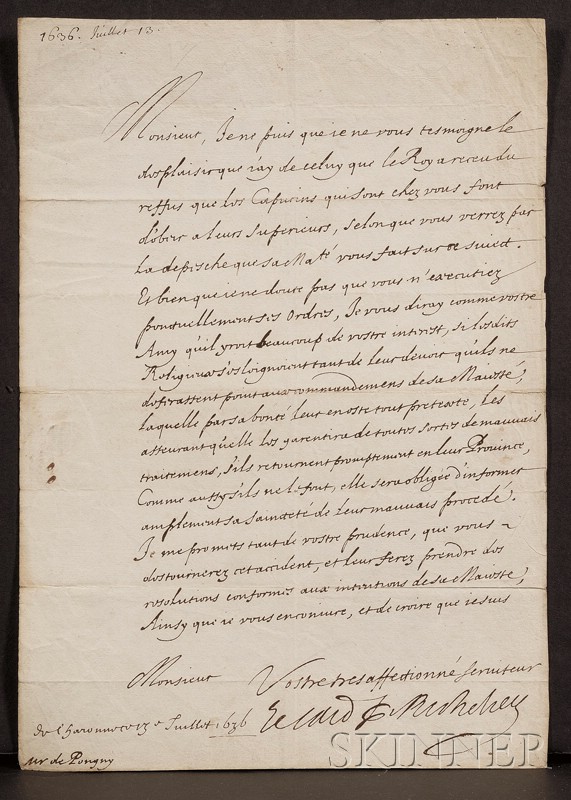 1636. Juillet 13.
Monsieur, Je ne puis que ie ne vous tesmoigne le
desplaisir que i'ay de celuy que le Roy a receu du
reffus que les Capucins qui sont chez vous font
d'obeir a leurs superieurs, selon que vous verrez par
la depesche que sa Maté vous fait sur ce suiect.
Et bien que ie ne doute pas que vous n'executiez
ponctuellement ses ordres, Je vous diray comme vostre
Amy qu'il yroit beaucoup de vostre interest, si lesdits
Religieux s'esloignoient tant de leur devoir qu'ils ne
deferassent point aux commandemens de sa Maiesté,
laquelle par sa bonté leur en oste tout pretexte, les
asseurant qu'elle les garentira de toutes sortes de mauvais
traitemens, s'ils retournent promptement en leur Province,
Comme aussy s'ils ne le font, elle sera obligée d'informer
amplement sa saincteté de leur mauvais procedé.
Je me promets tant de vostre prudence, que vous
destournerez cet accident, et leur ferez prendre des
resolutions conformes aux intentions de sa Maiesté,
Ainsy que ie vous en coniure, et de croire que ie suis
Monsieur
Vostre tres affectionné serviteur
Le Card de Richelieu
de Charonne ce 13e Juillet 1636
Mr de Pongny
SKINNER